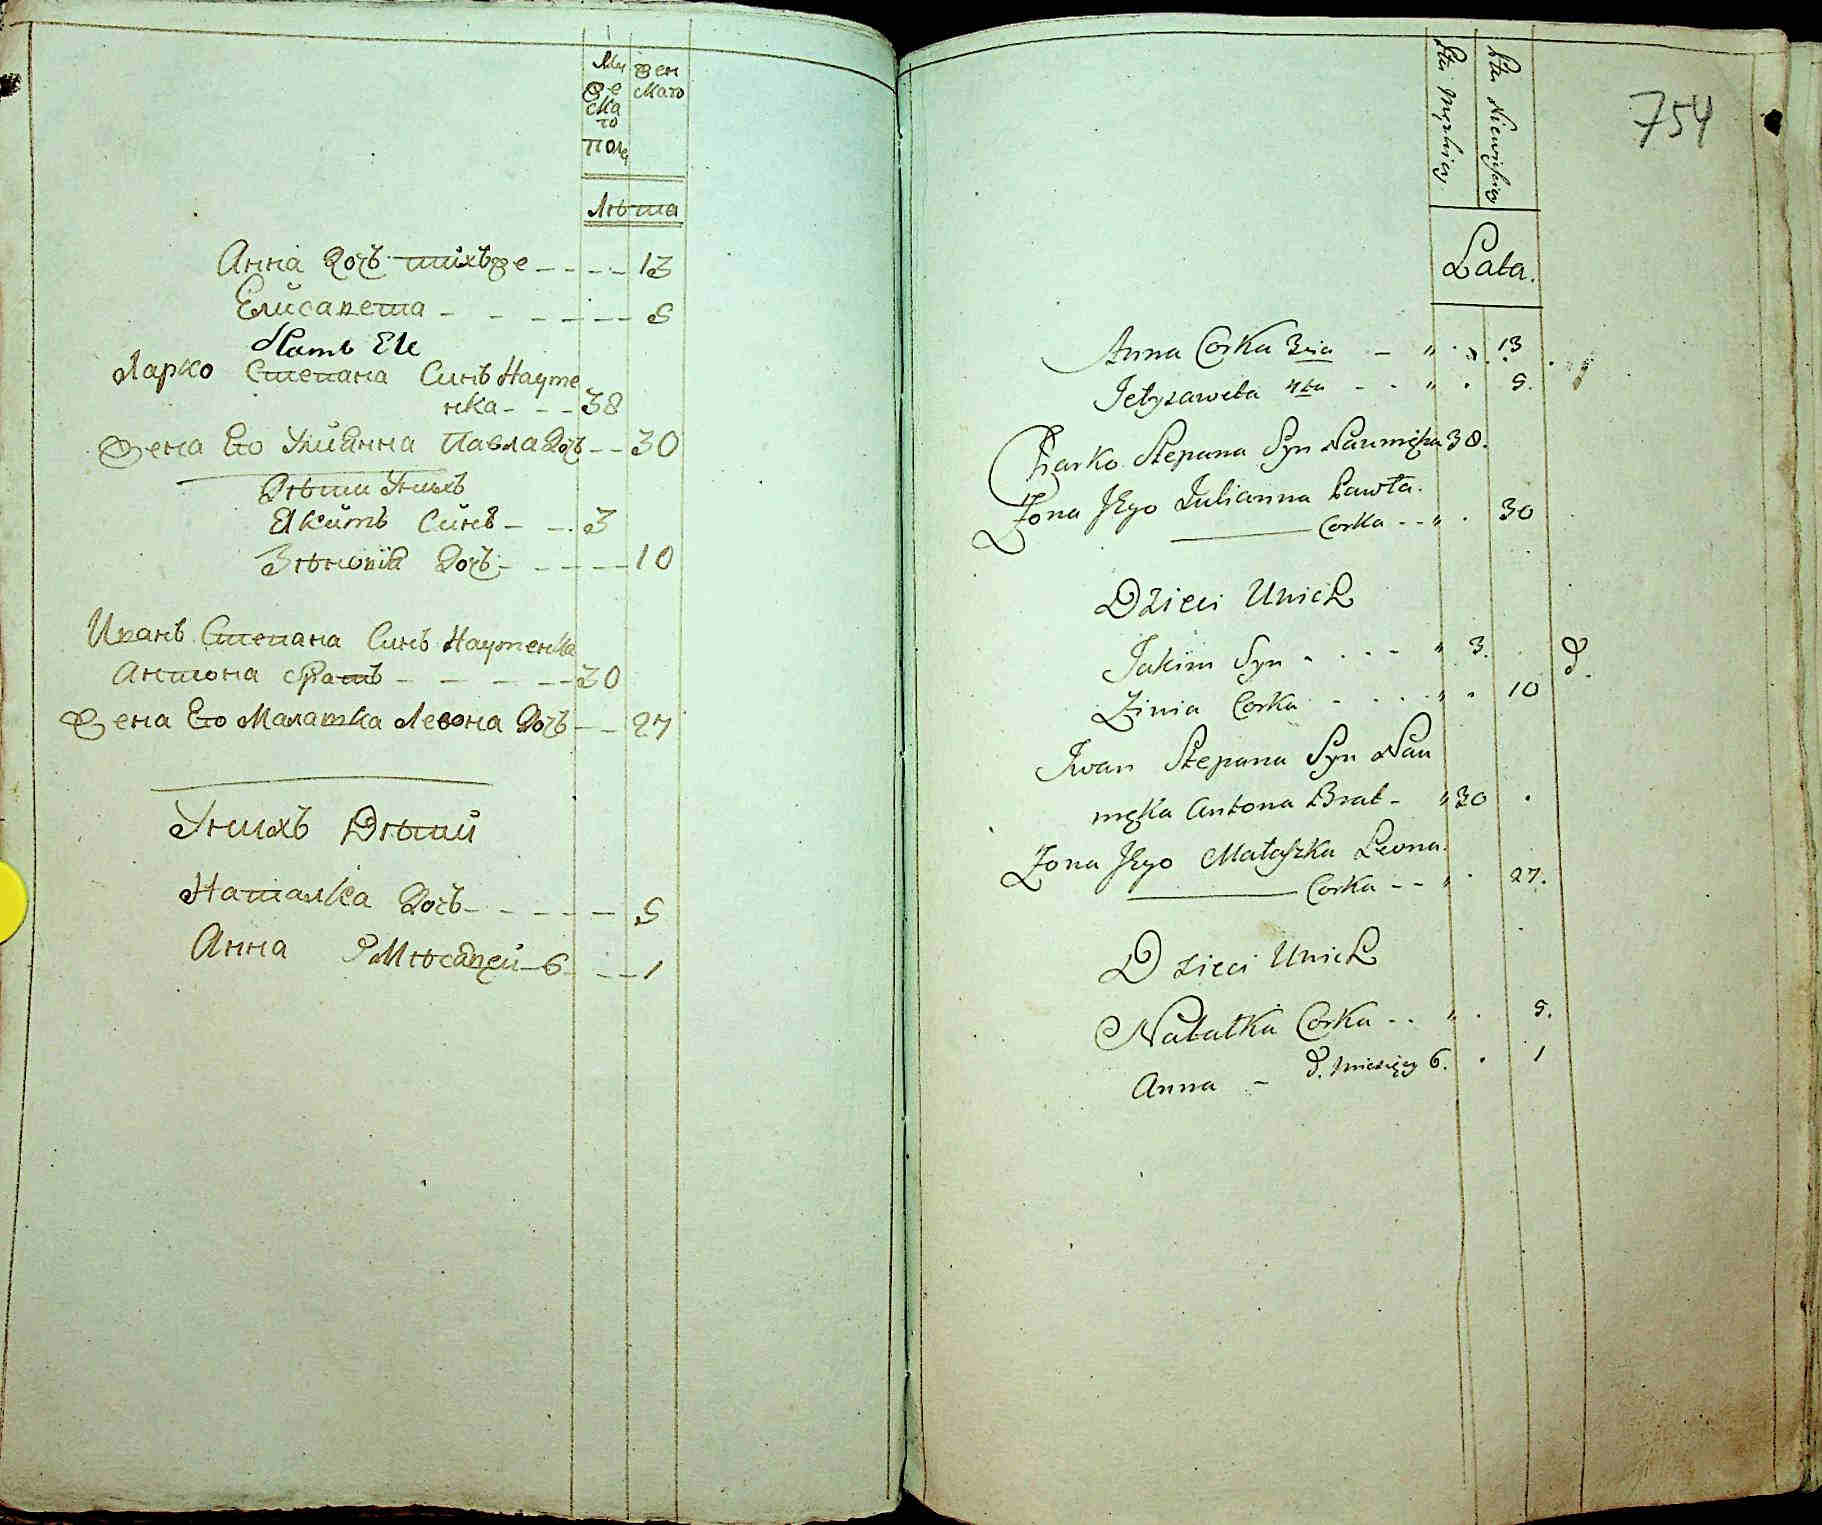 Му
же
ска
го
полу
жен
скаго
Лѣта
Анна дочь тихъже 13
Елисавета 5
Ларко Степана Синъ Науме
нка 38
Жена Его Улиянна Павла дочь 30
Дѣти Унихъ
Якимъ Синъ 3
Зѣновия дочь 10
Иванъ Степана Синъ Науменка
Антона братъ 30
Жена Его Малашка Левона дочь 27
Унихъ Дѣтий
Наталка дочь 5
Анна Мѣсяцей 6 1
754
Płci Męskiey
Płci Niewieściey
Lata.
Anna Corka 3cia 13
Jełyzaweta 4ta 5.
Charko Stepana Syn Naumęka 38.
Żona Jego Julianna Pawła.
Corka 30
Dzieci Unich
Jakim Syn 3.
Zinia Corka 10
Jwan Stepana Syn Nau
męka Antona Brat 30
Żona Jego Małaszka Leona.
Corka 27.
Dzieci Unich
Natałka Corka 5.
Anna d. miesięcy 6. 1